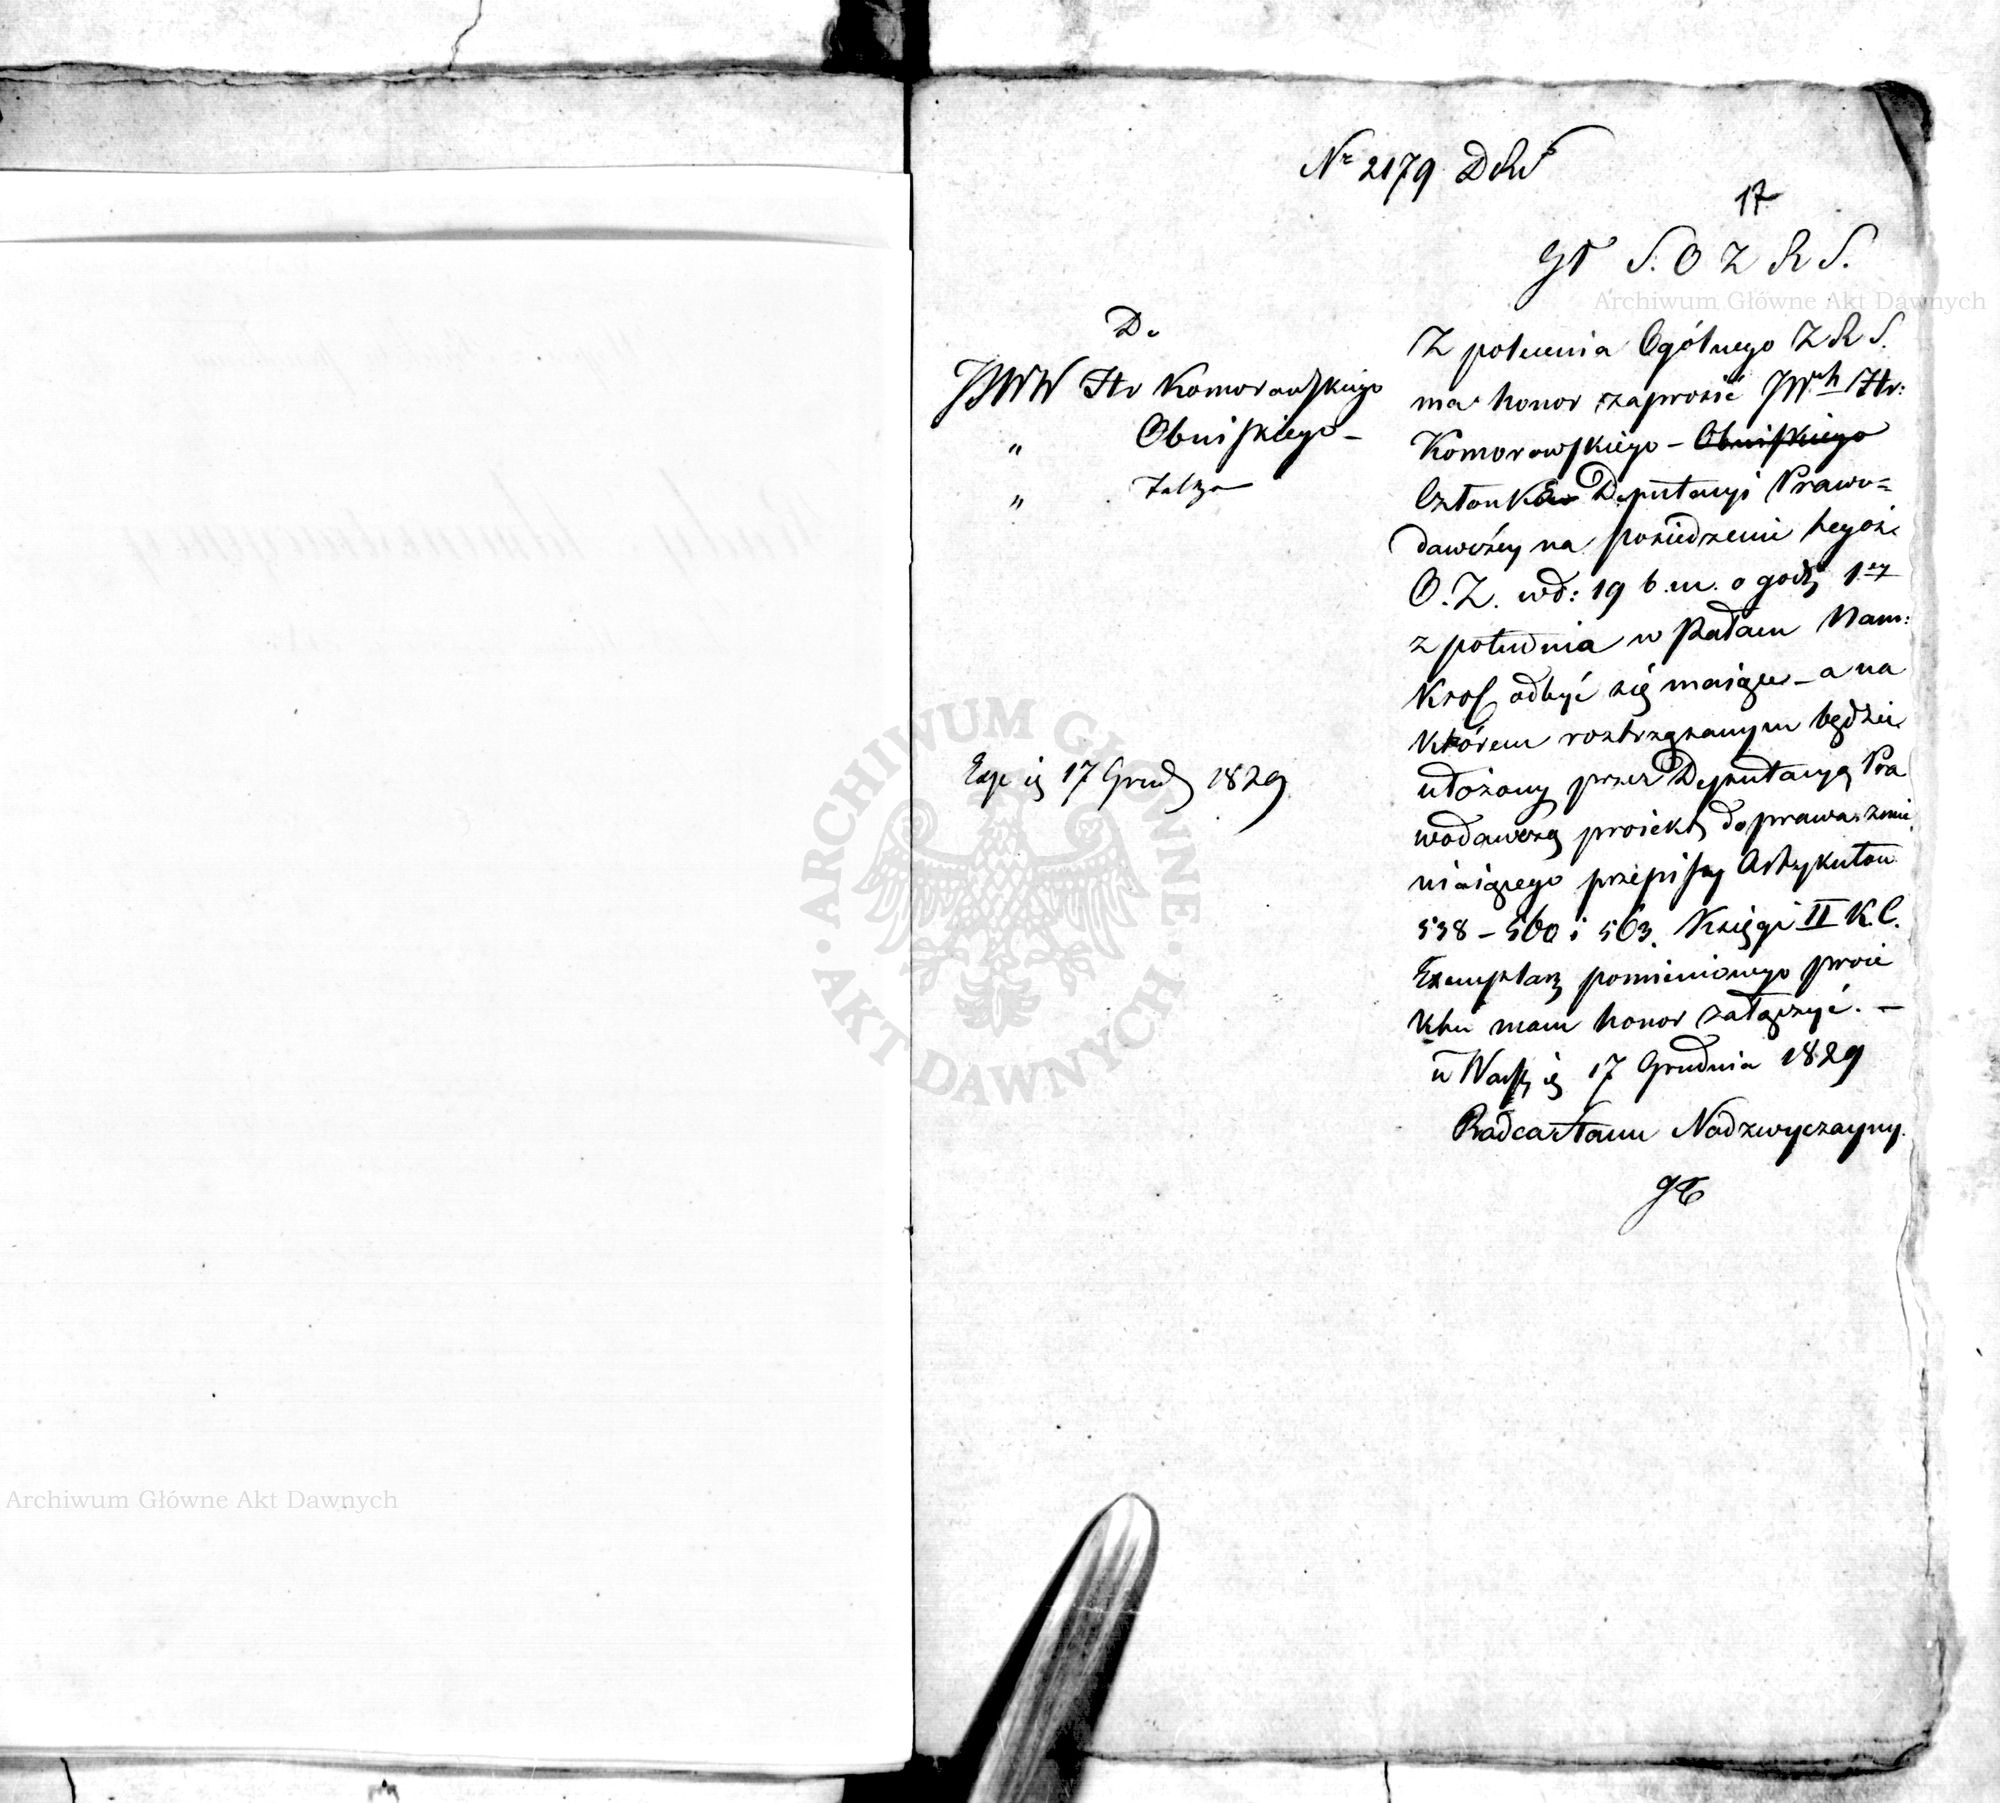 Nr 2179 DRS
17
S. O Z R S.
Do
JWW Hr Komorowskiego
" Obniskiego –
"
Exp
17 Grud 1829
Z polecenia Ogólnego Z R S.
ma honor zaprosić JWch Hr:
Komorowskiego – Obniskiego
Członków Deputacyi Prawo=
dawczéy na posiedzenie tegoż
O. Z. w d: 19 b. m. o godz 1éy
z południa w Pałacu Nam:
Krol odbyć się maiące – a na
którem roztrząsanym będzie
ułożony przez Deputacyą Pra
wodawczą proiekt do prawa zmie
niaiącego przepisy Artykułow
538 – 560 i 563. Księgi II K. C.
Exemplarz pomienionego proie
ktu mam honor załączyć. –
w Warsz 17 Grudnia 1829
Radca Stanu Nadzwyczayny.
ARCHIWUM GŁÓWNE AKT DAWNYCH
Archiwum Główne Akt Dawnych
Archiwum Główne Akt Dawnych